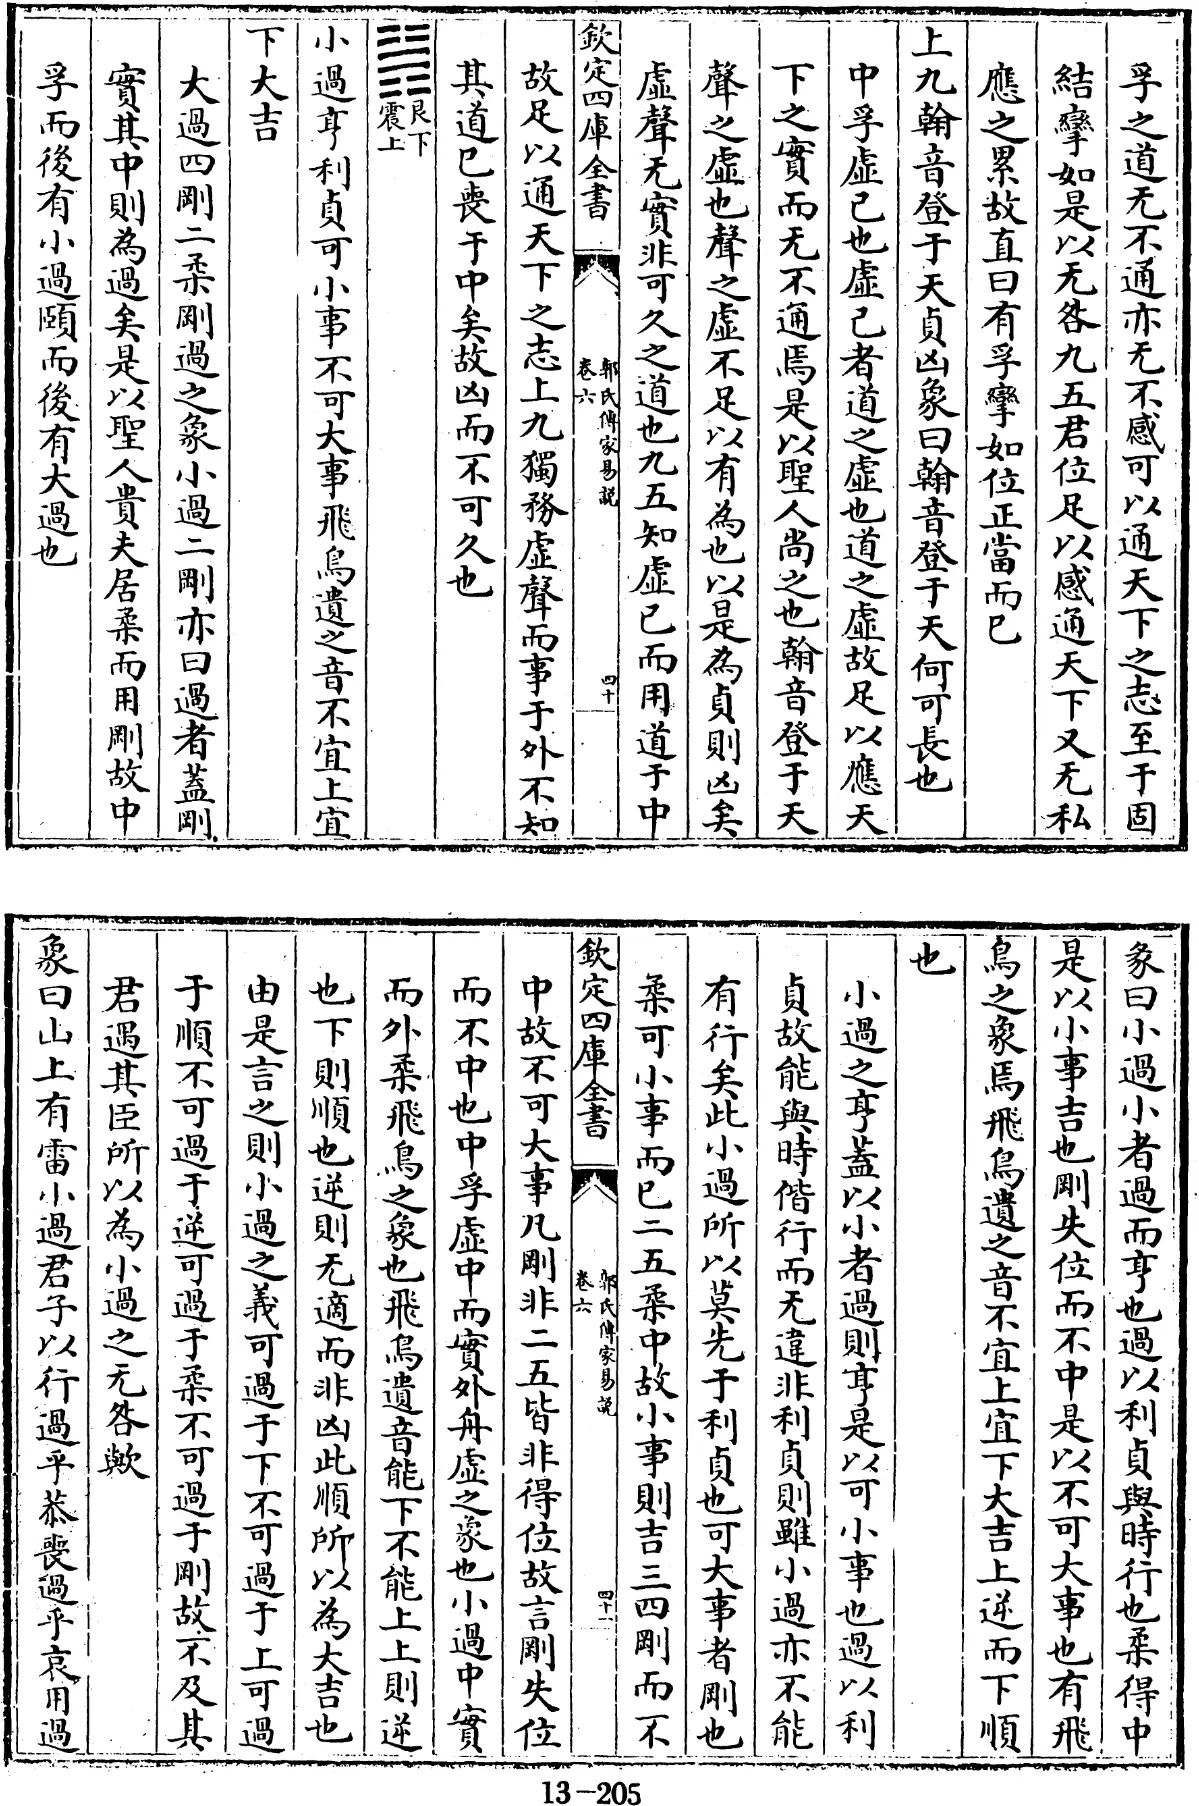 孚之道无不通亦无不感可以通天下之志至于固
結攣如是以无咎九五君位足以感通天下又无私
應之累故直曰有孚攣如位正當而已
上九翰音登于天貞凶象曰翰音登于天何可長也
中孚虛已也虛己者道之虛也道之虛故足以應天
下之實而无不通焉是以聖人尚之也翰音登于天
聲之虛也聲之虛不足以有為也以是為貞則凶矣
虛聲无實非可久之道也九五知虛已而用道于中
欽定四庫全書
郭氏傳家易說
卷六
四十
故足以通天下之志上九獨務虛聲而事于外不知
其道已喪于中矣故凶而不可久也
艮下
震上
小過亨利貞可小事不可大事飛鳥遺之音不宜上宜
下大吉
大過四剛二柔剛過之象小過二剛亦曰過者蓋剛
實其中則為過矣是以聖人貴夫居柔而用剛故中
孚而後有小過頤而後有大過也
彖曰小過小者過而亨也過以利貞與時行也柔得中
是以小事吉也剛失位而不中是以不可大事也有飛
鳥之象焉飛鳥遺之音不宜上宜下大吉上逆而下順
也
小過之亨蓋以小者過則亨是以可小事也過以利
貞故能與時偕行而无違非利貞則雖小過亦不能
有行矣此小過所以莫先于利貞也可大事者剛也
柔可小事而已二五柔中故小事則吉三四剛而不
欽定四庫全書
郭氏傳家易說
卷六
四十一
中故不可大事凡剛非二五皆非得位故言剛失位
而不中也中孚虛中而實外舟虛之象也小過中實
而外柔飛鳥之象也飛鳥遺音能下不能上上則逆
也下則順也逆則无適而非凶此順所以為大吉也
由是言之則小過之義可過于下不可過于上可過
于順不可過于逆可過于柔不可過于剛故不及其
君遇其臣所以為小過之无咎歟
象曰山上有雷小過君子以行過乎恭喪過乎哀用過
13-205